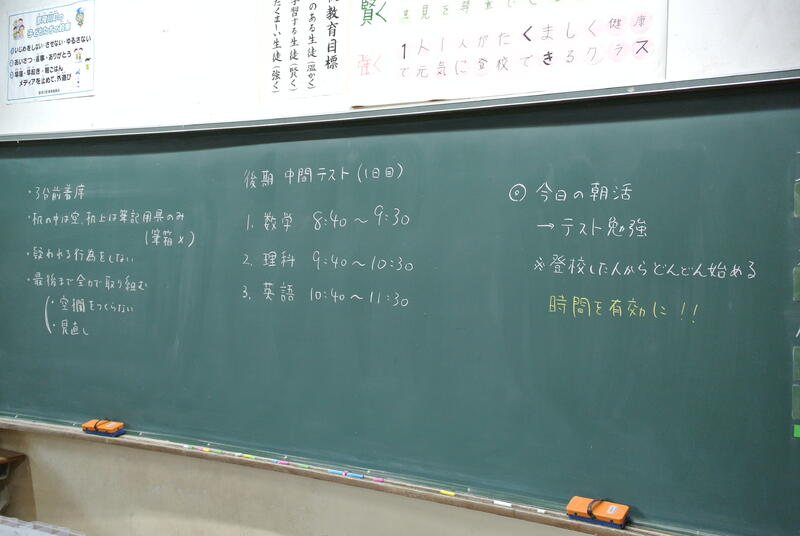 ①いじめをしない・させない・ゆるさない
②あいさつ・返事・ありがとう
③早寝・早起き・朝ごはん
メディアを止めて、外遊び
教育目標
のある生徒(温かく)
学習する生徒(賢く)
たくましい生徒(強く)
賢く
強く
1人1人がたくましく健康
で元気に登校できるクラス
・3分前着席
・机の中は空、机上は筆記用具のみ
(筆箱×)
・疑われる行為をしない
・最後まで全力で取り組む
・空欄をつくらない
・見直し
後期 中間テスト(1日目)
1. 数学 8:40～9:30
2. 理科 9:40～10:30
3. 英語 10:40～11:30
◎ 今日の朝活
→ テスト勉強
※登校した人からどんどん始める
時間を有効に!!